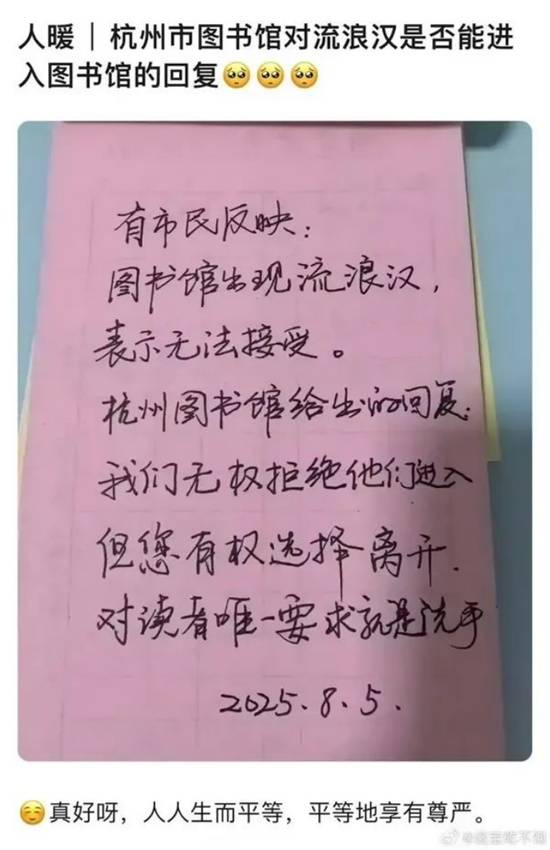 人暖｜杭州市图书馆对流浪汉是否能进
入图书馆的回复🥺🥺🥺
有市民反映：
图书馆出现流浪汉，
表示无法接受。
杭州图书馆给出的回复：
我们无权拒绝他们进入
但您有权选择离开.
对读者唯一要求就是洗手
2025.8.5.
☺️真好呀，人人生而平等，平等地享有尊严。